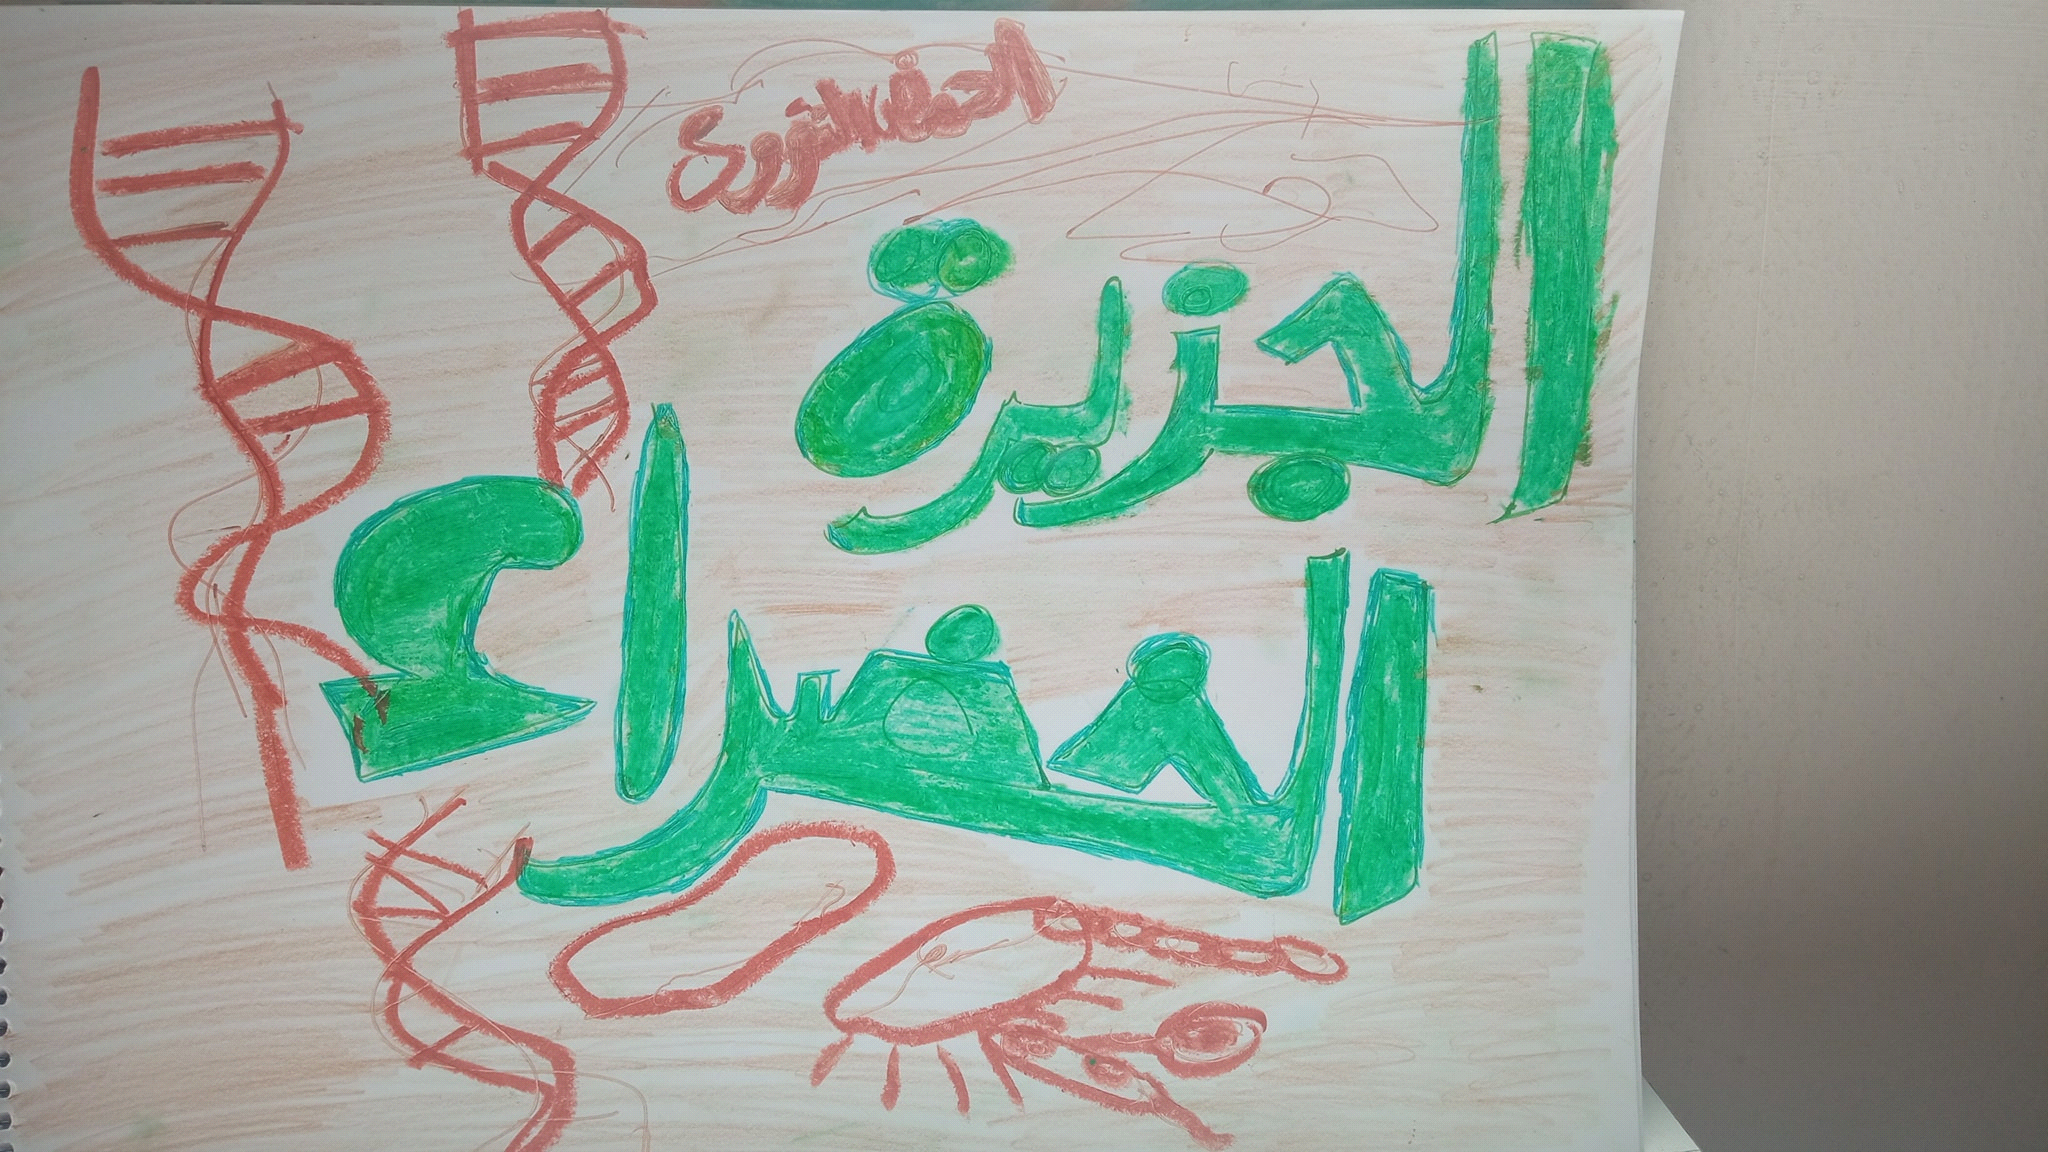 الحمض النووي
الجزيرة
الخضراء